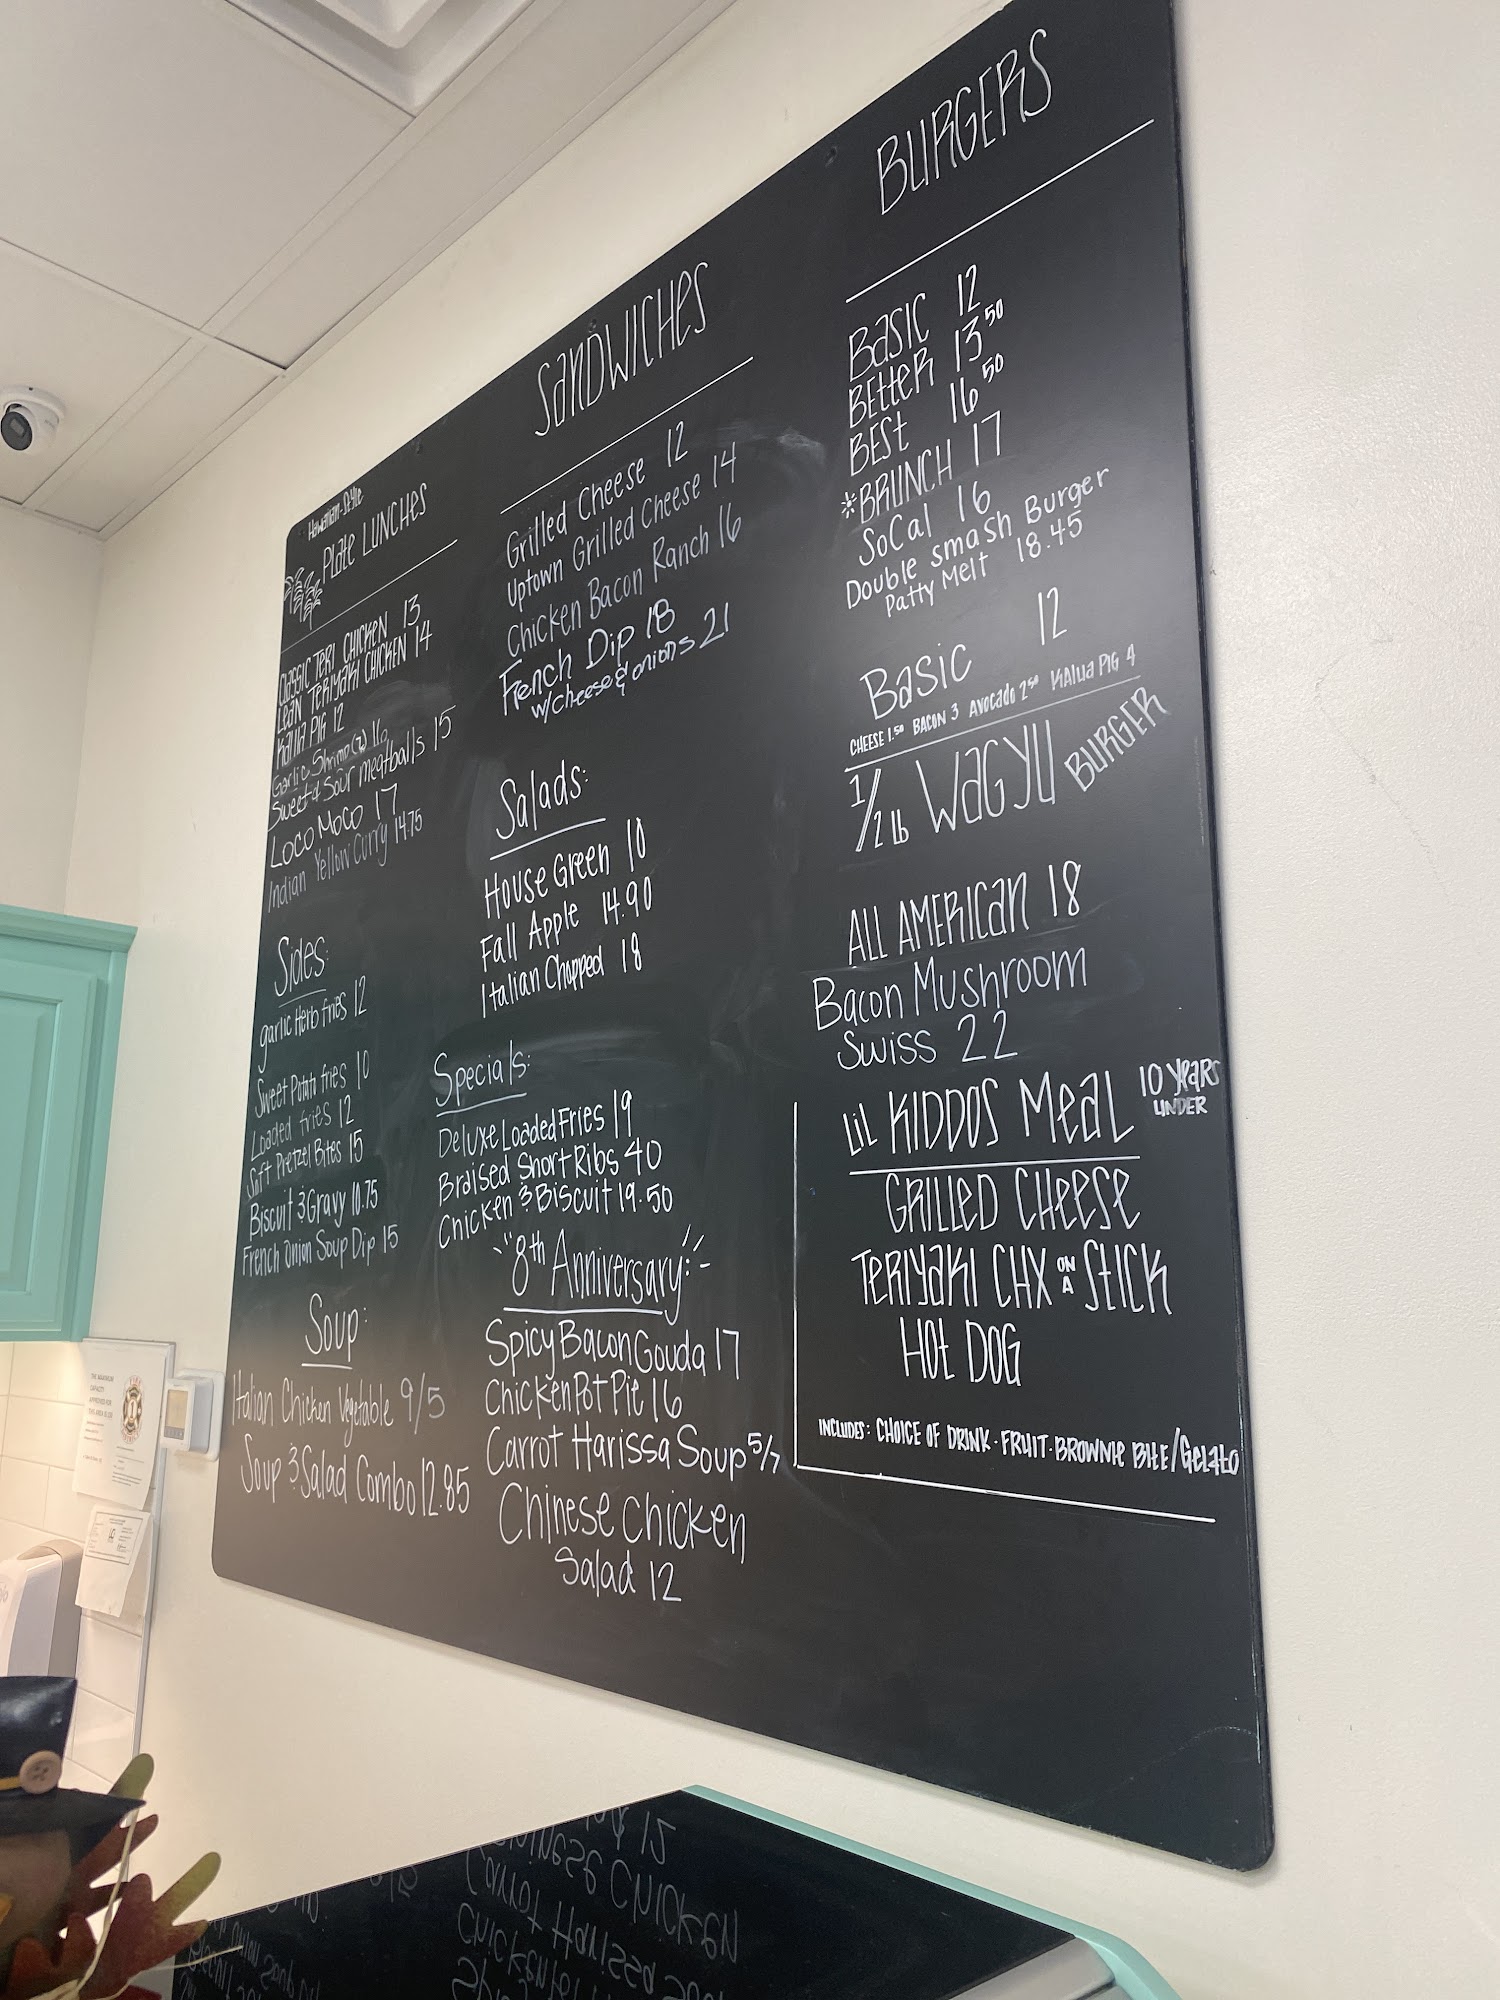 Hawaiian-Style
Plate LUNCHES
CLASSIC TERI CHICKEN 13
LEAN TERIYAKI CHICKEN 14
KALUA PIG 12
Garlic Shrimp (7) 16
Sweet & Sour meatballs 15
LOCO MOCO 17
Indian Yellow Curry 14.75
Sides:
garlic Herb fries 12
Sweet Potato fries 10
Loaded fries 12
Soft Pretzel Bites 15
Biscuit & Gravy 10.75
French Onion Soup Dip 15
Soup:
Italian Chicken Vegetable 9/5
Soup & Salad Combo 12.85
SANDWICHES
Grilled Cheese 12
Uptown Grilled Cheese 14
Chicken Bacon Ranch 16
French Dip 18
w/cheese & onions 21
Salads:
House Green 10
Fall Apple 14.90
Italian Chopped 18
Specials:
Deluxe Loaded Fries 19
Braised Short Ribs 40
Chicken & Biscuit 19.50
"8th Anniversary:"
Spicy Bacon Gouda 17
Chicken Pot Pie 16
Carrot Harissa Soup 5/7
Chinese Chicken
Salad 12
BURGERS
BASIC 12
BETTER 13.50
BEST 16.50
*BRUNCH 17
SoCal 16
Double smash Burger
Patty Melt 18.45
Basic 12
CHEESE 1.50 BACON 3 AVOCADO 2.50 KALUA PIG 4
1/2 lb WAGYU BURGER
ALL AMERICAN 18
Bacon Mushroom
Swiss 22
LIL KIDDOS MEAL 10 YEARS
UNDER
GRILLED CHEESE
TERIYAKI CHX ON A STICK
HOT DOG
INCLUDES: CHOICE OF DRINK · FRUIT · BROWNIE BITE/GELATO